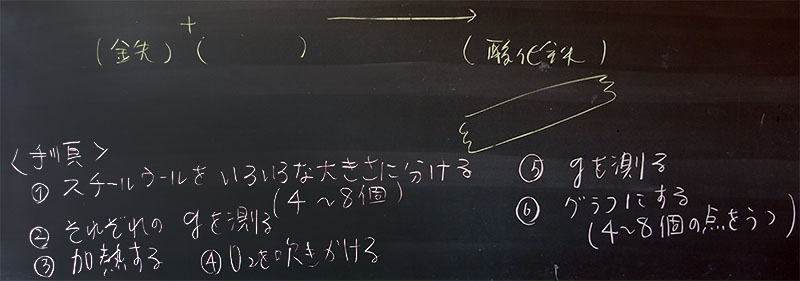 (鉄) + (　　) → (酸化鉄)
〈手順〉
① スチールウールをいろいろな大きさに分ける
(4〜8個)
② それぞれの gを測る
③ 加熱する ④ O₂を吹きかける
⑤ gを測る
⑥ グラフにする
(4〜8個の点をうつ)